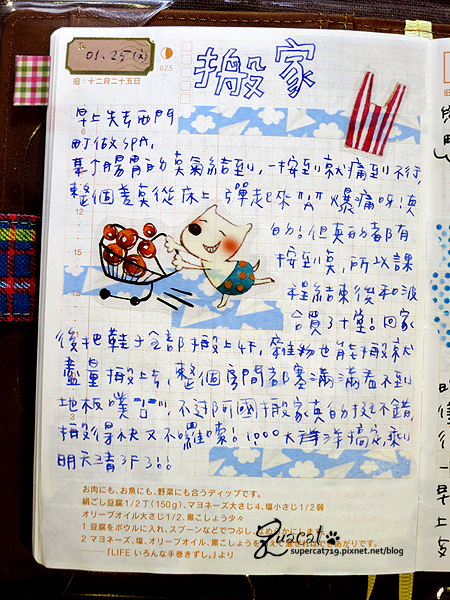 01.25(火)
025
旧:十二月二十五日
搬家
早上先去西門
町做SPA,
6
幕丁腸胃的莫氣結到,一按到就痛到不行,
整個差莫從床上彈起來"A"爆痛呀!真
的!但真的都有
12
按到莫,所以課
程結束後和波
15
合買3十堂!回家
後把鞋子全部搬上4F,雜物也能搬就
盡量搬上去,整個房間都塞滿滿看不到
地板噗"皿",不過阿國搬家真的挺不錯,
搬得快又不囉嗦!1000大洋洋搞定,剩
明天清3F3!!
お肉にも、お魚にも、野菜にも合うディップです。
絹ごし豆腐1/2丁(150g)、マヨネーズ大さじ4、塩小さじ1/2弱
オリーブオイル大さじ1/2、黒こしょう少々
1 豆腐をボウルに入れ、スプーンなどでつぶし、
2 マヨネーズ、塩、オリーブオイル、黒こしょうを
『LIFE いろんな手巻きずし。』より
Suacat
supercat719.pixnet.net/blog